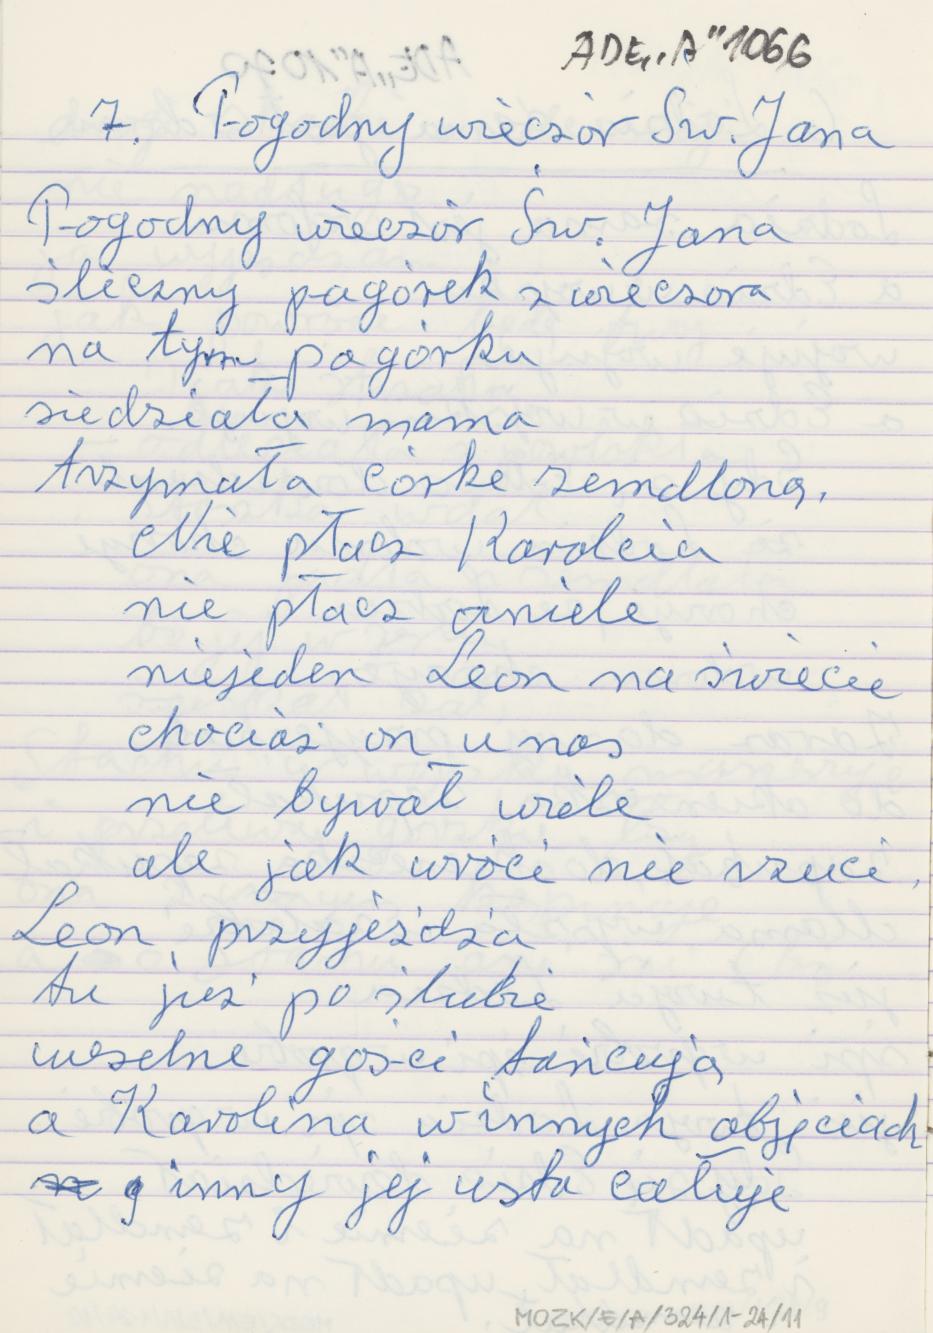 ADE„A"1066
7. Pogodny wieczór Św. Jana
Pogodny wieczór Św. Jana
śliczny pagórek z wieczora
na tym pagórku
siedziała mama
trzymała córke zemdloną,
Nie płacz Karolcia
nie płacz aniele
niejeden Leon na świecie
chociaż on u nas
nie bywał wiele
ale jak wróci nie rzuci,
Leon przyjeżdża
tu już po ślubie
weselne gości tańcują
a Karolina w innych objęciach
inny jej usta całuje
MOZK/E/A/324/1-24/11